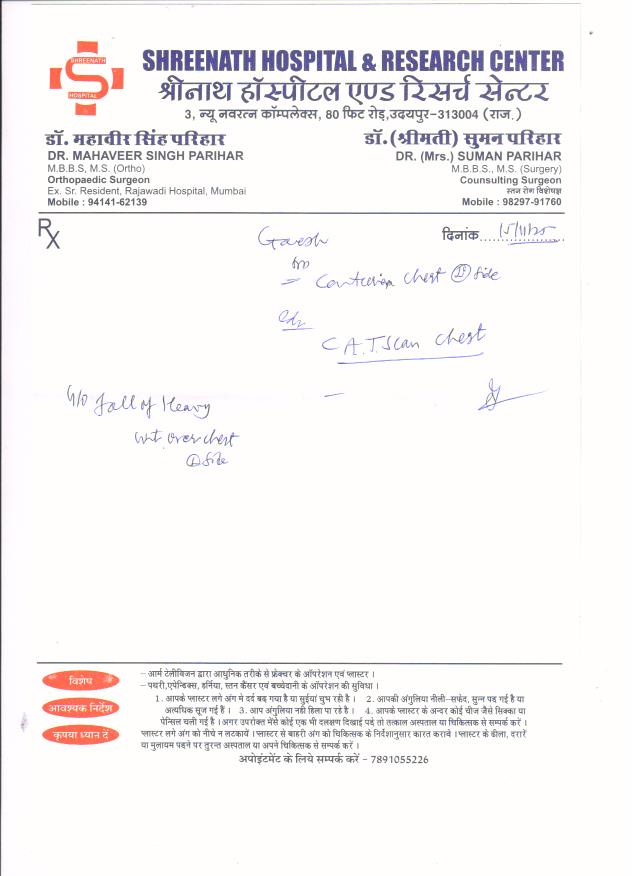 SHREENATH
HOSPITAL
SHREENATH HOSPITAL & RESEARCH CENTER
श्रीनाथ हॉस्पीटल एण्ड रिसर्च सेन्टर
3, न्यू नवरत्न कॉम्पलेक्स, 80 फिट रोड़,उदयपुर-313004 (राज.)
डॉ. महावीर सिंह परिहार
DR. MAHAVEER SINGH PARIHAR
M.B.B.S, M.S. (Ortho)
Orthopaedic Surgeon
Ex. Sr. Resident, Rajawadi Hospital, Mumbai
Mobile : 94141-62139
डॉ.(श्रीमती) सुमन परिहार
DR. (Mrs.) SUMAN PARIHAR
M.B.B.S., M.S. (Surgery)
Counsulting Surgeon
स्तन रोग विशेषज्ञ
Mobile : 98297-91760
Rx
दिनांक 15/11/25
Contusion Chest side
C.A.T. Scan chest
H/O fall of Heavy
wt. over chest
side
विशेष
आवश्यक निर्देश
कृपया ध्यान दें
– आर्म टेलीविजन द्वारा आधुनिक तरीके से फ्रेक्चर के ऑपरेशन एवं प्लास्टर ।
– पथरी,एपेन्डिक्स, हर्निया, स्तन कैंसर एवं बच्चेदानी के ऑपरेशन की सुविधा ।
1. आपके प्लास्टर लगे अंग मे दर्द बढ़ गया है या सुईयां चुभ रही है । 2. आपकी अंगुलिया नीली-सफेद, सुन्न पड़ गई है या
अत्यधिक सूज गई हैं । 3. आप अंगुलिया नही हिला पा रहे है । 4. आपके प्लास्टर के अन्दर कोई चीज जैसे सिक्का या
पेन्सिल चली गई है । अगर उपरोक्त मेंसे कोई एक भी दलक्षण दिखाई पदे तो तत्काल अस्पताल या चिकित्सक से सम्पर्क करें ।
प्लास्टर लगे अंग को नीचे न लटकायें । प्लास्टर से बाहरी अंग को चिकित्सक के निर्देशानुसार कारत करावे । प्लास्टर के ढीला, दरारें
या मुलायम पडने पर तुरन्त अस्पताल या अपने चिकित्सक से सम्पर्क करें ।
अपोइंटमेन्ट के लिये सम्पर्क करें - 7891055226